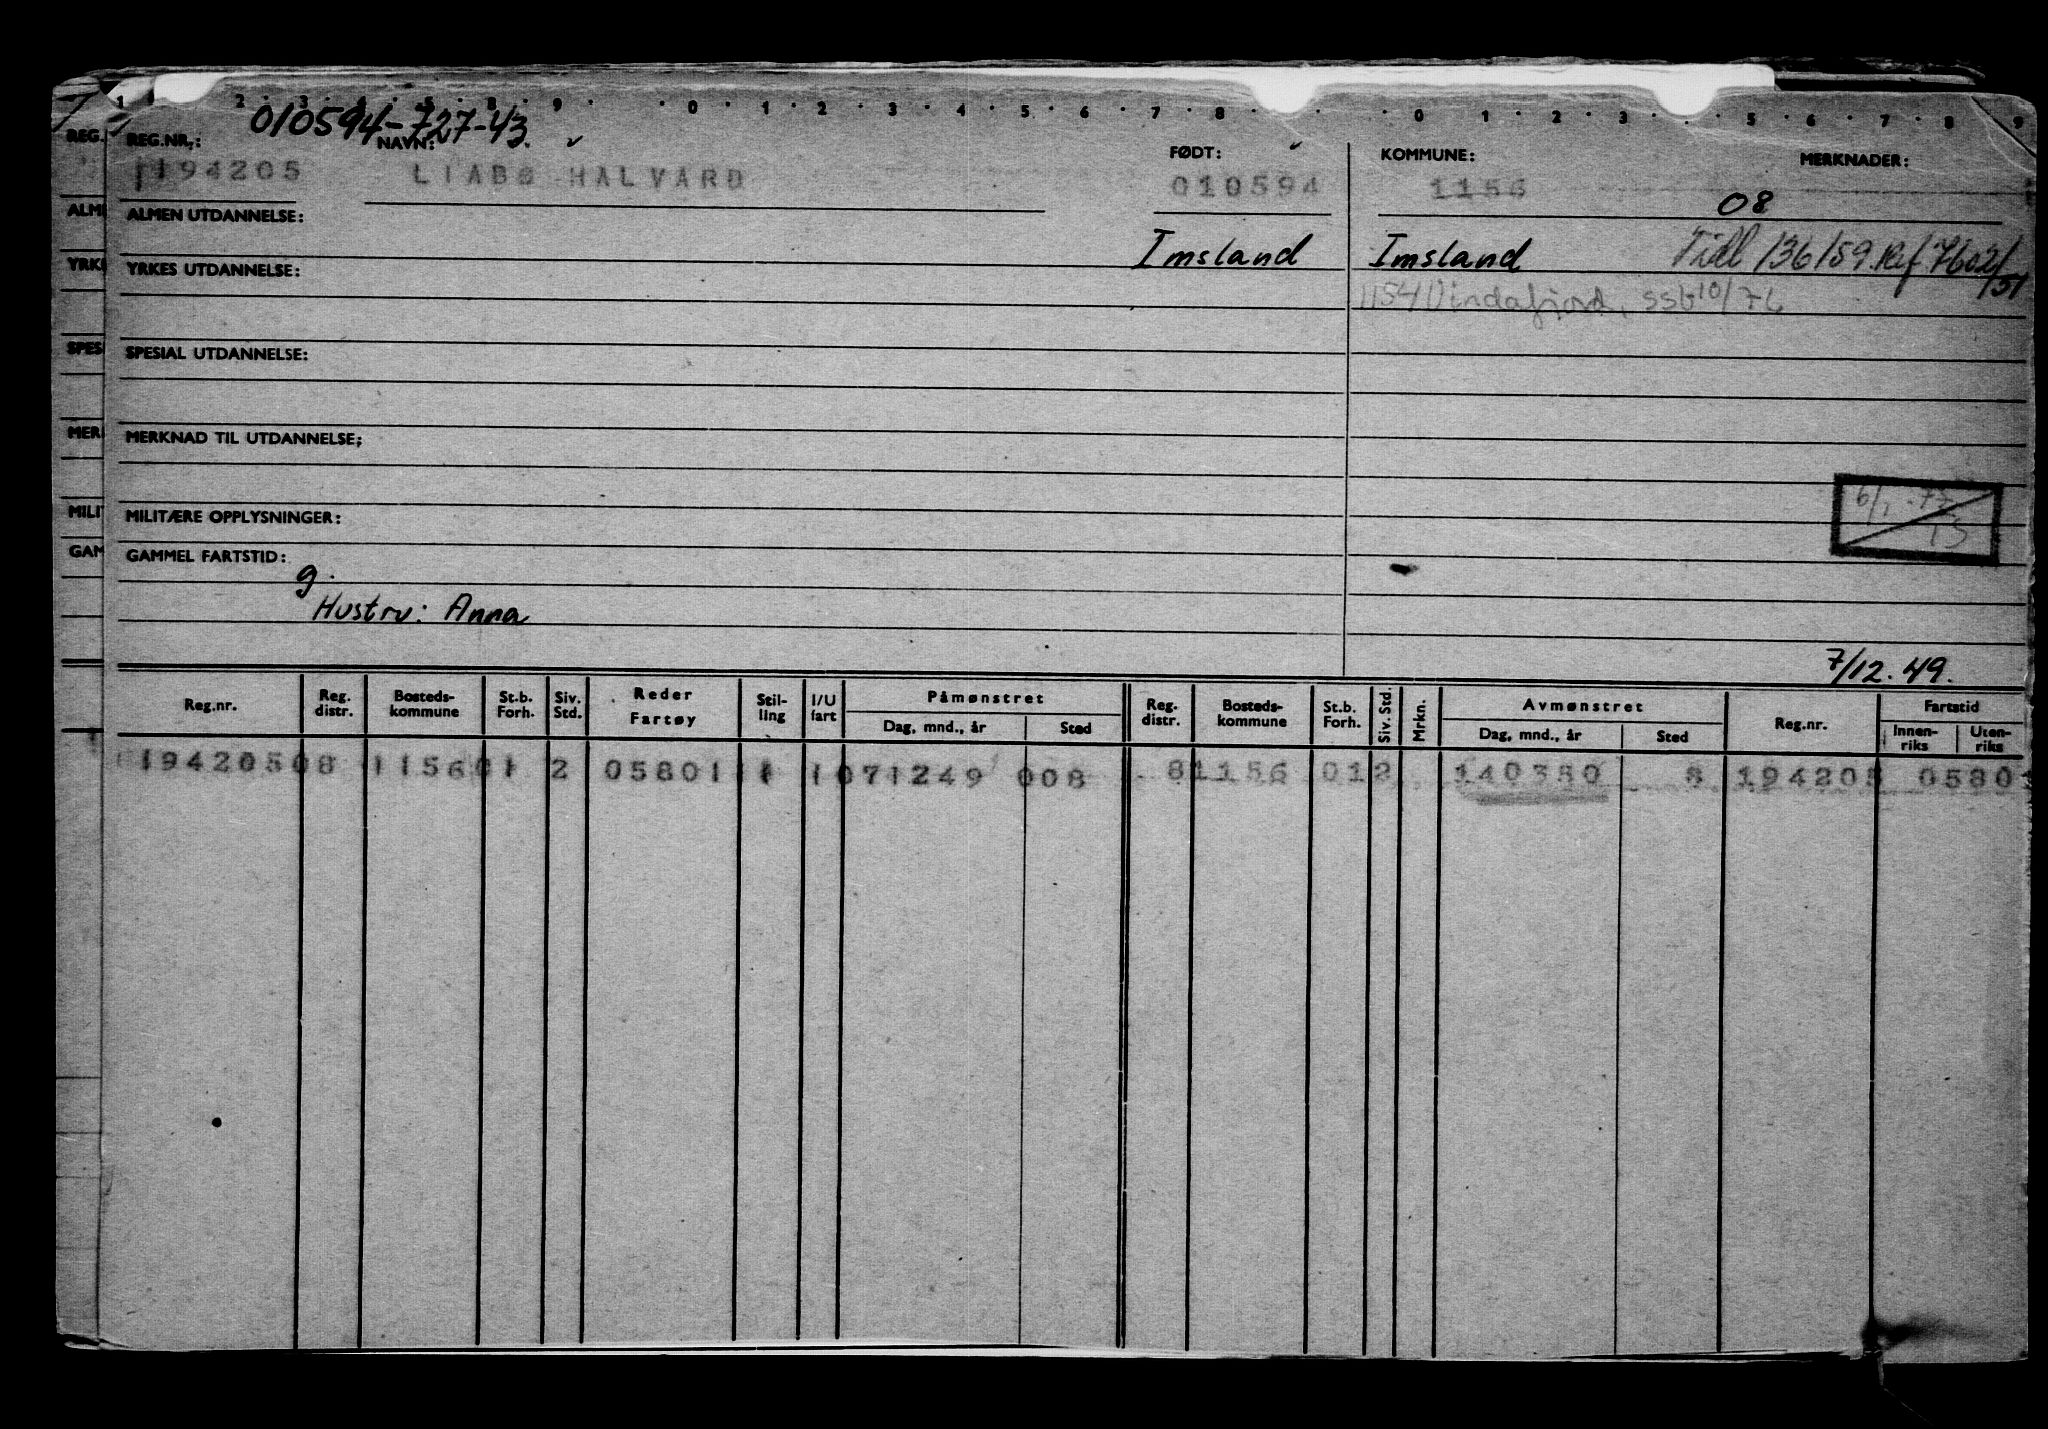 1 2 · 3 · 5 · 8 · 9 · · 0 · 1 · 2 · 3 · 4 · 5 · 6 · 7 · 8 · · · 0 · 1 · 2 · 3 · · 5 · 6 · 7 · 8 · 9
010594-727-43.
REG. REG.NR.: NAVN: FØDT: KOMMUNE: MERKNADER:
194205 LIABØ HALVARD 010594 1156
08
ALM ALMEN UTDANNELSE:
Imsland Imsland Tidl 136/59. Ref 7602/51
YRKE YRKES UTDANNELSE:
1154 Vindafjord, ssb 10/76
SPES SPESIAL UTDANNELSE:
MER MERKNAD TIL UTDANNELSE:
6/1 -77
15
MILIT MILITÆRE OPPLYSNINGER:
GAM GAMMEL FARTSTID:
g.
Hustru: Anna
7/12. 49.
Reg.nr. Reg. distr. Bosteds-kommune St.b. Forh. Siv. Std. Reder Fartøy Stil-ling I/U fart Påmønstret Reg. distr. Bosteds-kommune St.b. Forh. Siv. Std. Mrkn. Avmønstret Reg.nr. Fartstid
Dag, mnd., år Sted Dag, mnd., år Sted Innen-riks Uten-riks
19420508 115601 2 05801 1 1071249 008 81156 012 140350 8 194205 0580